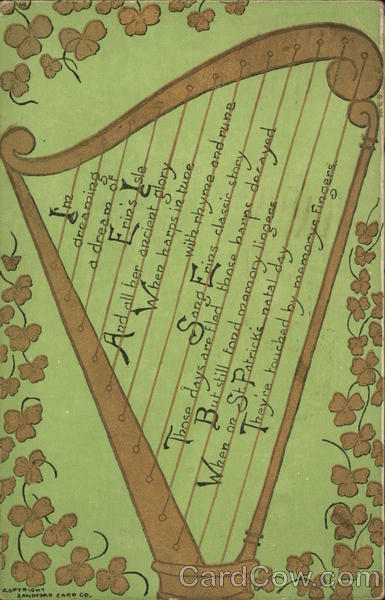 I'm
dreaming
a dream of
Erin's Isle
And all her ancient glory
When harps in tune
with rhyme and rune
Sang Erins classic story
Those days are fled those harps decayed
But still fond memory lingers
When on St Patricks natal day
Theyre touched by memorys fingers.
COPYRIGHT
SANDFORD CARD CO.
CardCow.com